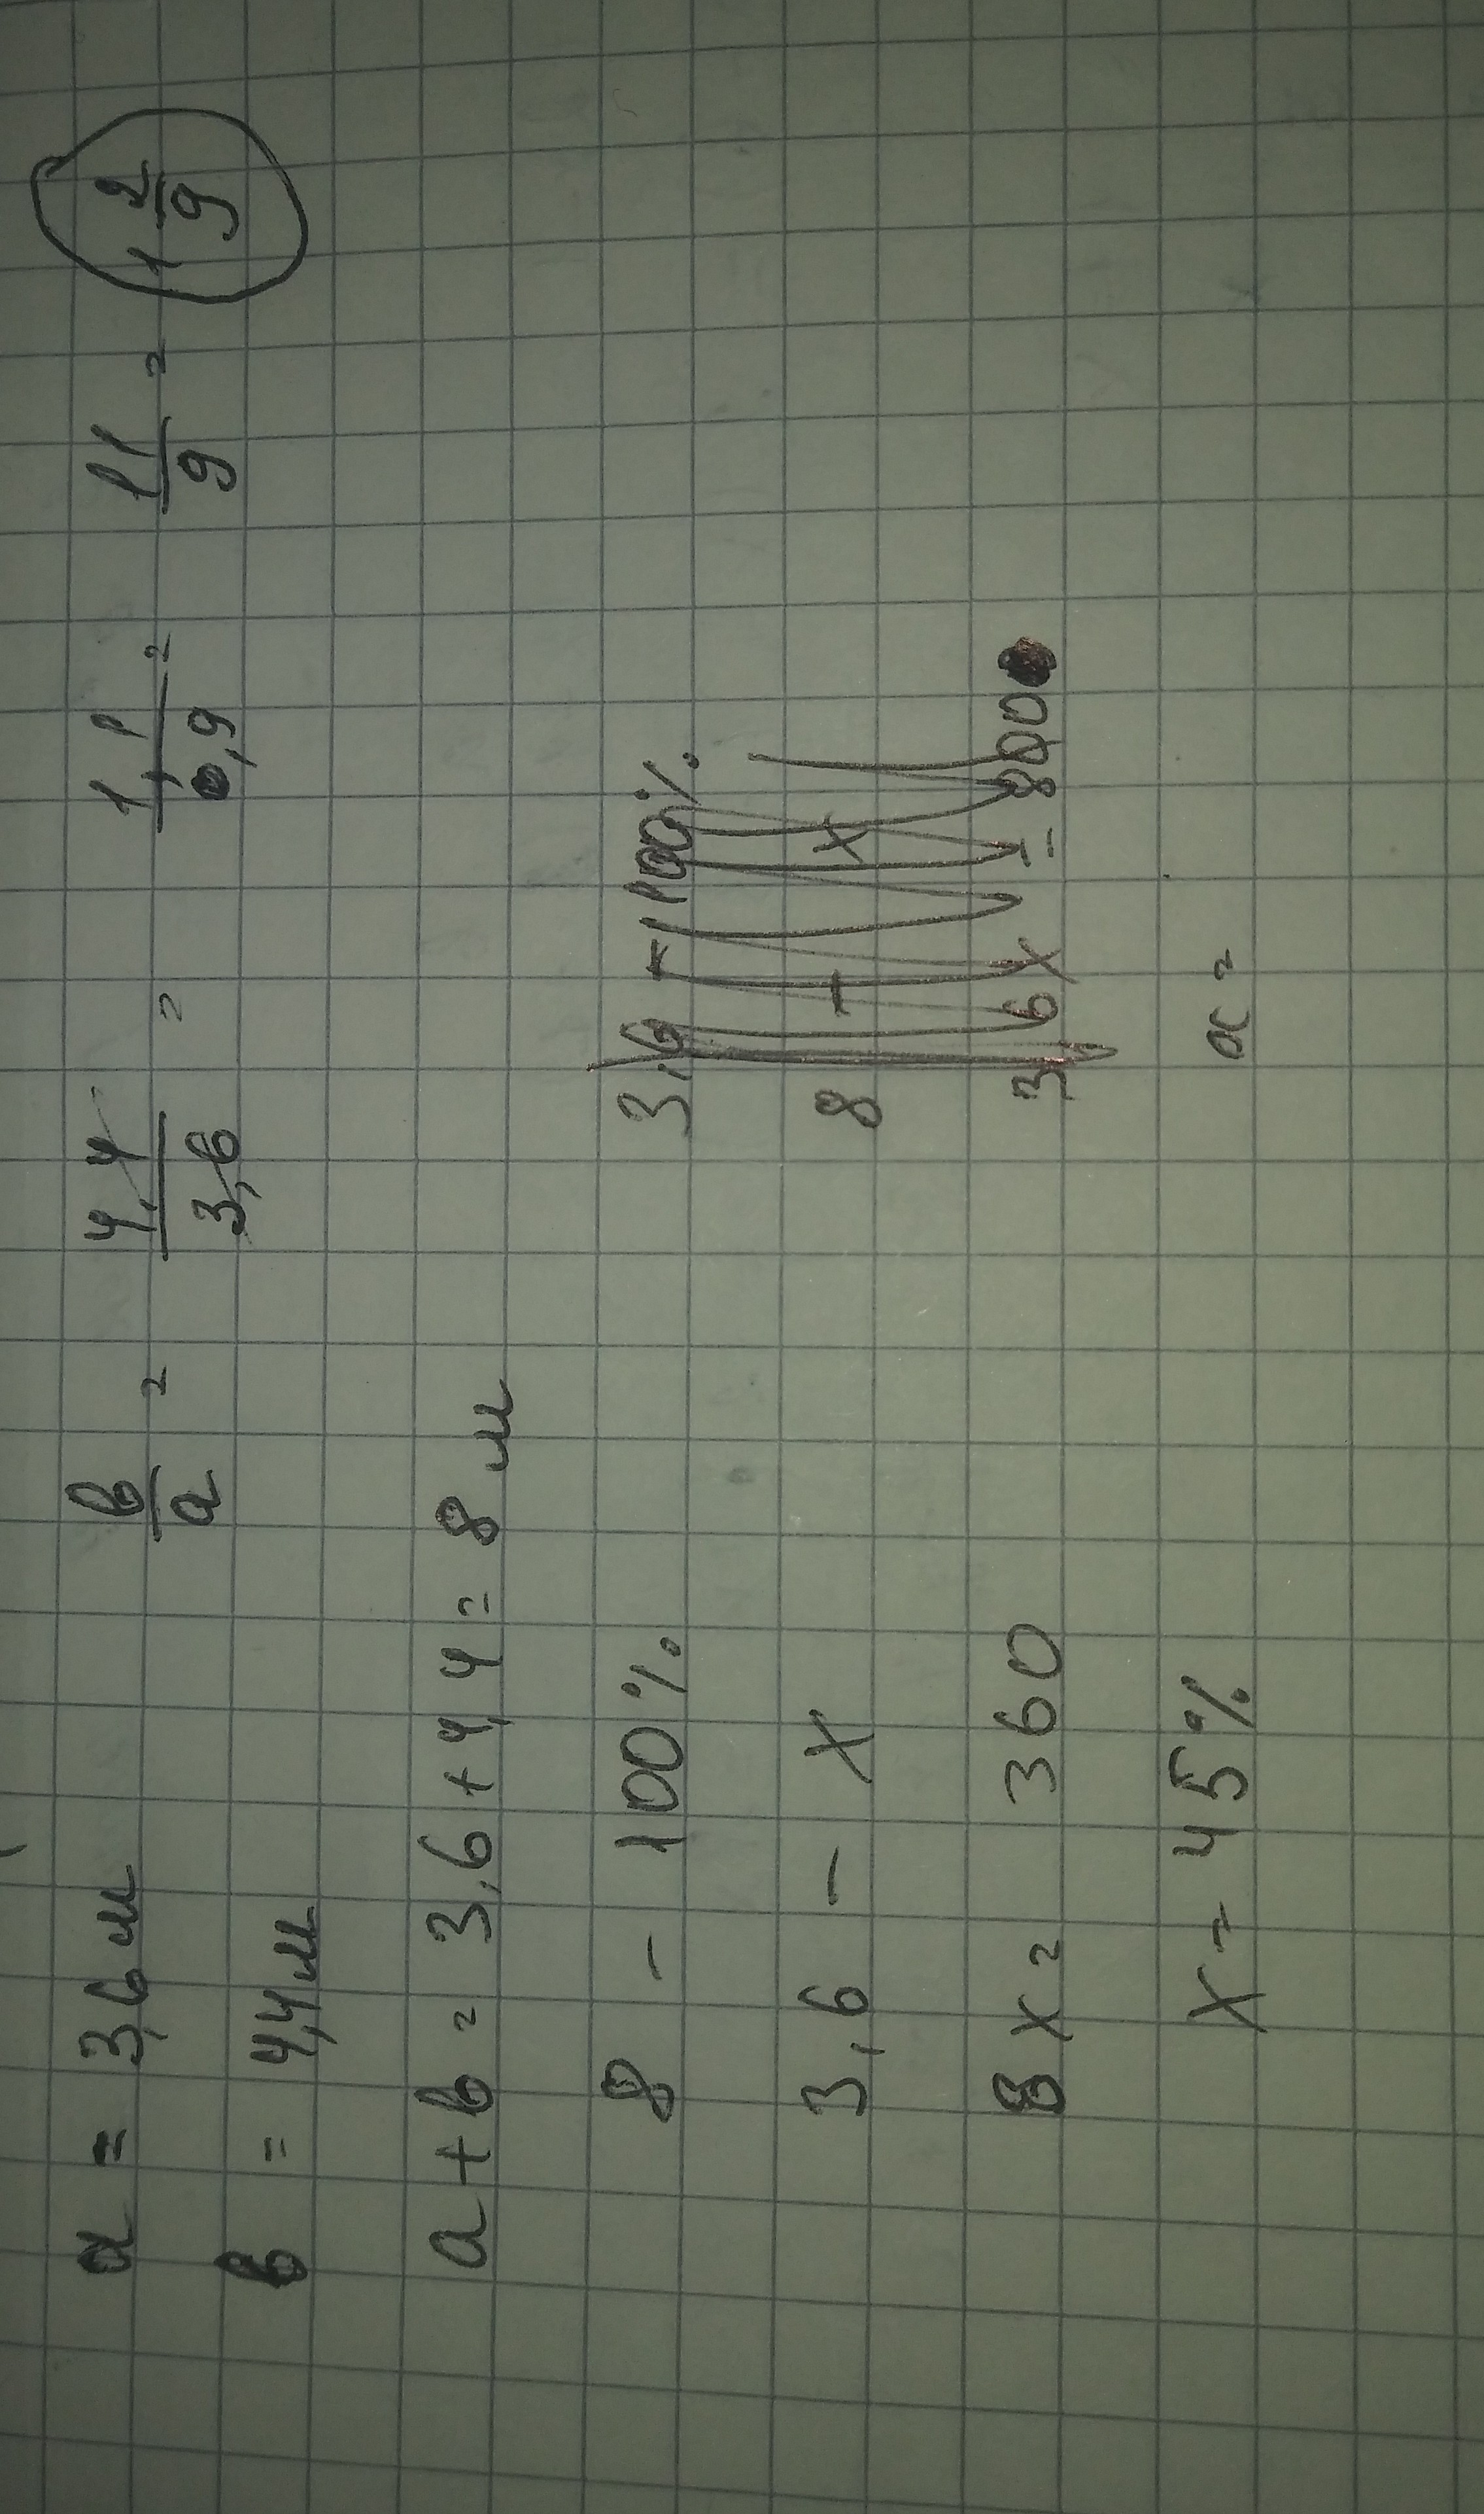 a = 3,6 м
в = 4,4 м
в/а = 4,4/3,6 = 1,1/0,9 = 11/9 = 1 2/9
a + в = 3,6 + 4,4 = 8 м
8 - 100%
3,6 - x
8 x = 360
x = 45%
3,6 - 100%
8 - x
3,6 x = 800
x =